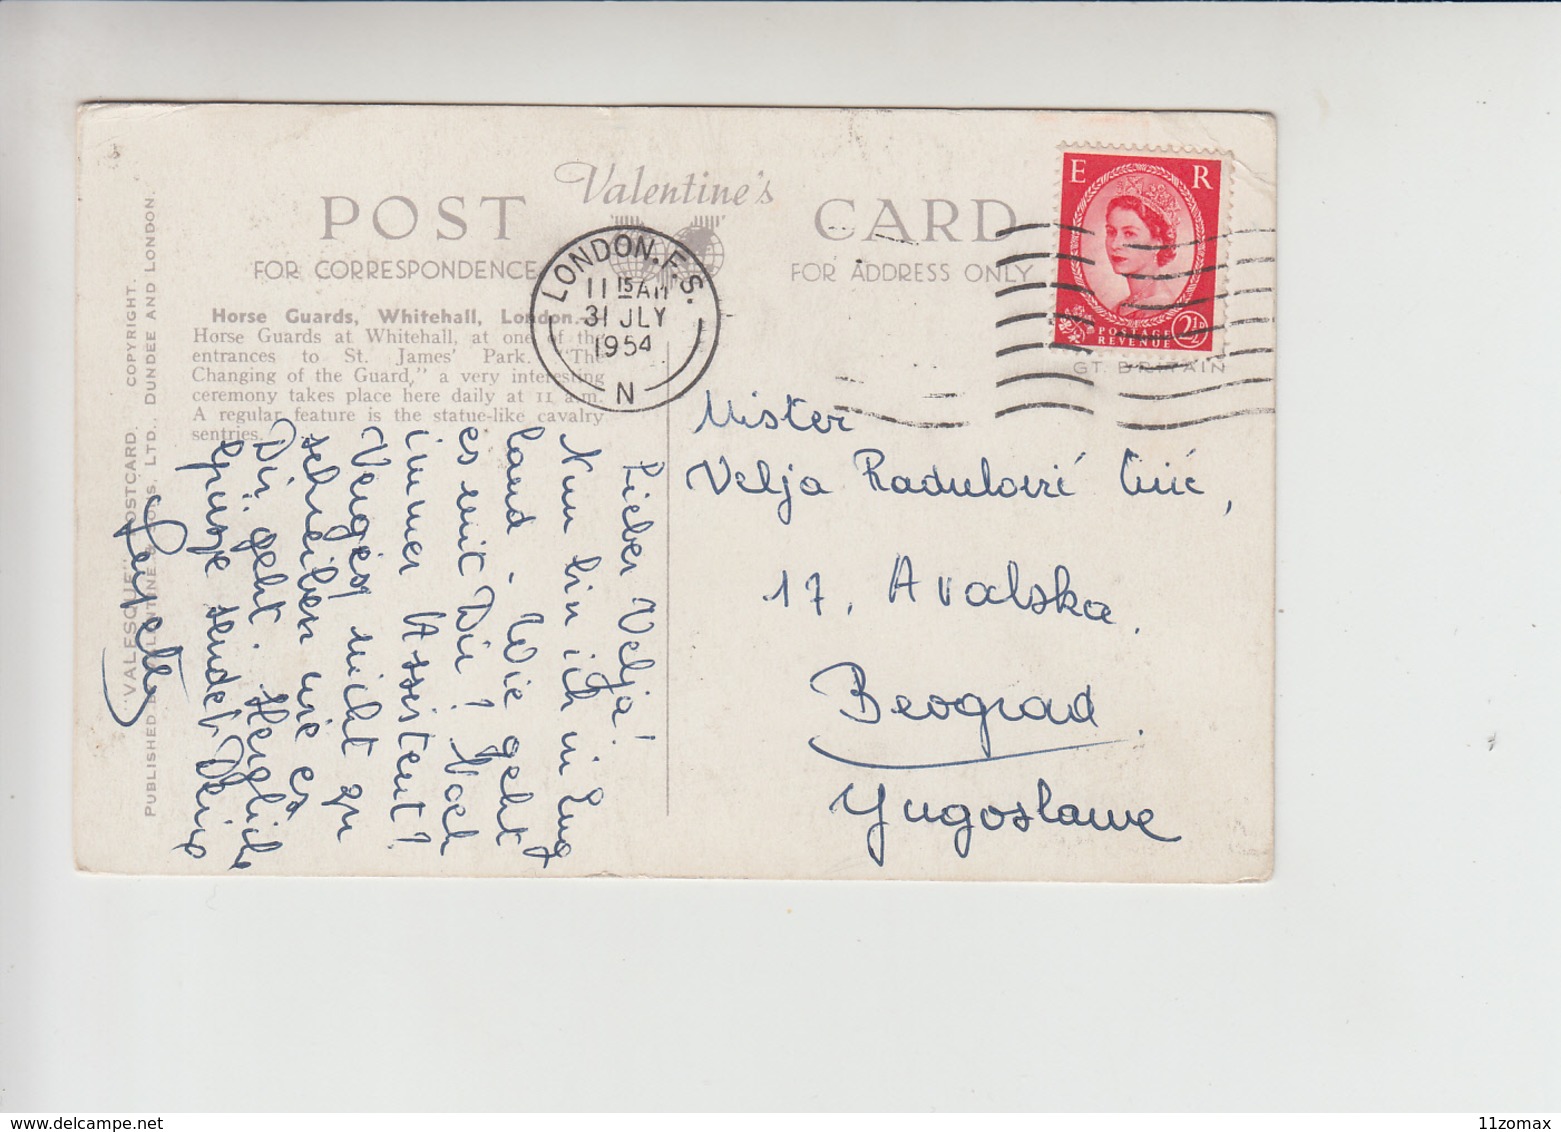 POST Valentine's CARD
FOR CORRESPONDENCE
FOR ADDRESS ONLY
Horse Guards, Whitehall, London.—
Horse Guards at Whitehall, at one of the
entrances to St. James' Park. "The
Changing of the Guard," a very interesting
ceremony takes place here daily at 11 a.m.
A regular feature is the statue-like cavalry
sentries.
"VALESQUE" POSTCARD. COPYRIGHT.
PUBLISHED BY VALENTINE & SONS, LTD., DUNDEE AND LONDON.
LONDON. F.S.
11 15 AM
31 JLY
1954
N
E R
POSTAGE
REVENUE
2½D
GT. BRITAIN
Lieber Velja!
Nun bin ich in Eng
land - Wie geht
es mit Dir? Noch
immer Assistent?
Vergiss nicht zu
schreiben wie es
Dir geht. Herzliche
Grüsse sendet Deine
Mister
Velja Radulović
17, Avalska,
Beograd.
Yugoslawie
11zomax